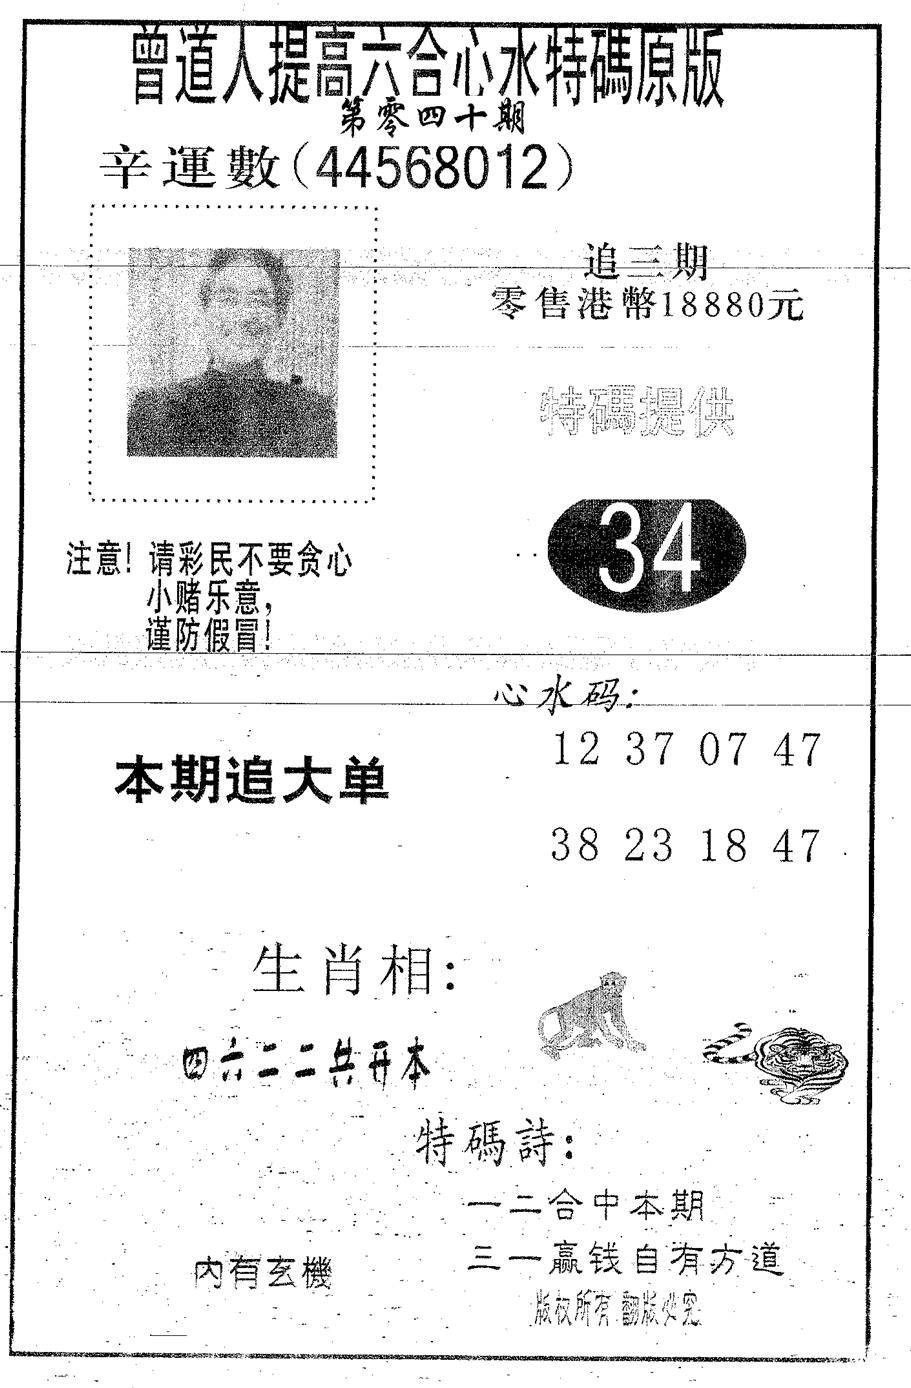 曾道人提高六合心水特碼原版
第零四十期
辛運數(44568012)
追三期
零售港幣18880元
特碼提供
34
注意!请彩民不要贪心
小赌乐意，
谨防假冒!
心水码:
12 37 07 47
本期追大单
38 23 18 47
生肖相:
四六二二共开本
特碼詩:
一二合中本期
三一赢钱自有方道
内有玄機
版权所有 翻版必究